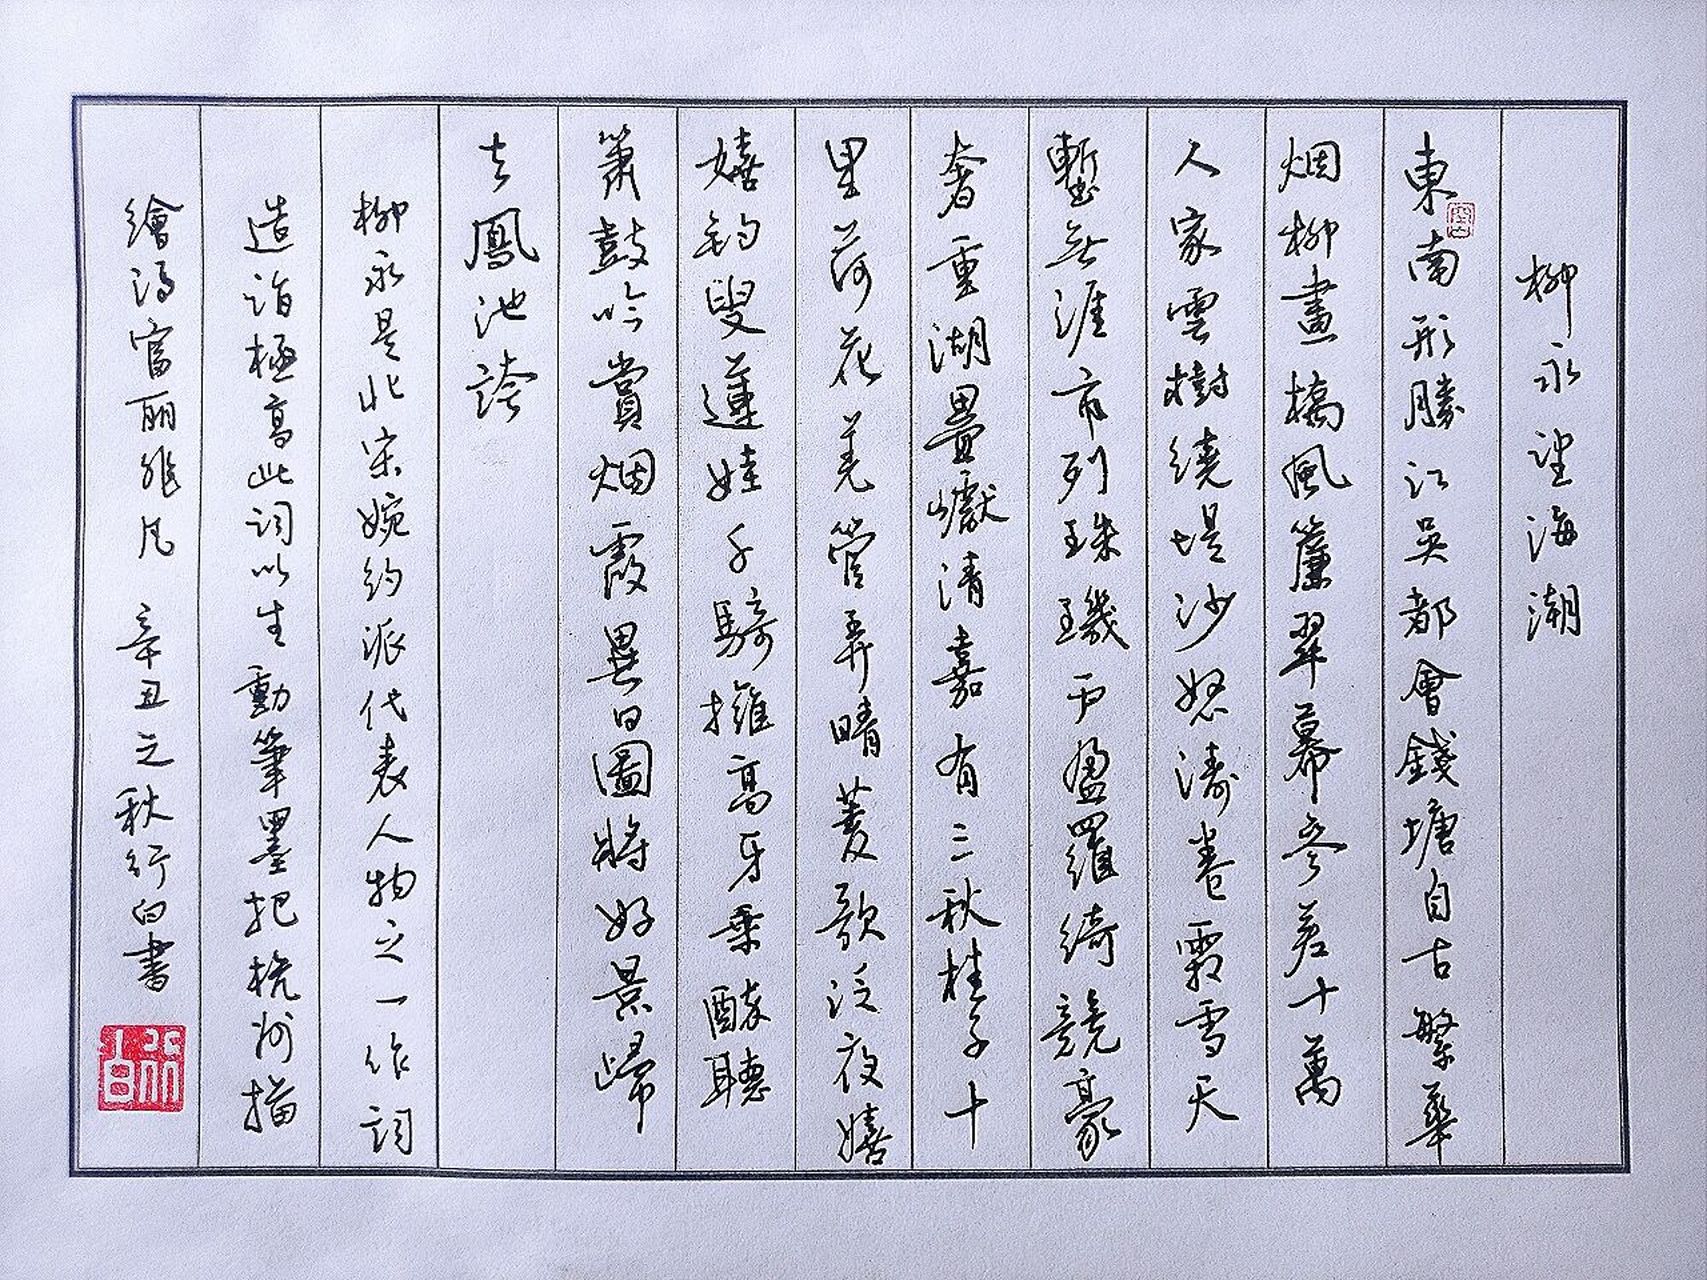 柳永望海潮
東南形勝江吴都會錢塘自古繁華
烟柳畫橋風簾翠幕參差十萬
人家雲樹繞堤沙怒濤卷霜雪天
塹无涯市列珠璣户盈羅綺競豪
奢重湖疊巘清嘉有三秋桂子十
里荷花羌管弄晴菱歌泛夜嬉
嬉釣叟蓮娃千騎擁高牙乘醉聽
簫鼓吟賞烟霞異日圖將好景歸
去鳳池誇
柳永是北宋婉约派代表人物之一作词
造诣極高此词以生動筆墨把杭州描
繪得富丽非凡 辛丑之秋行白書
行白